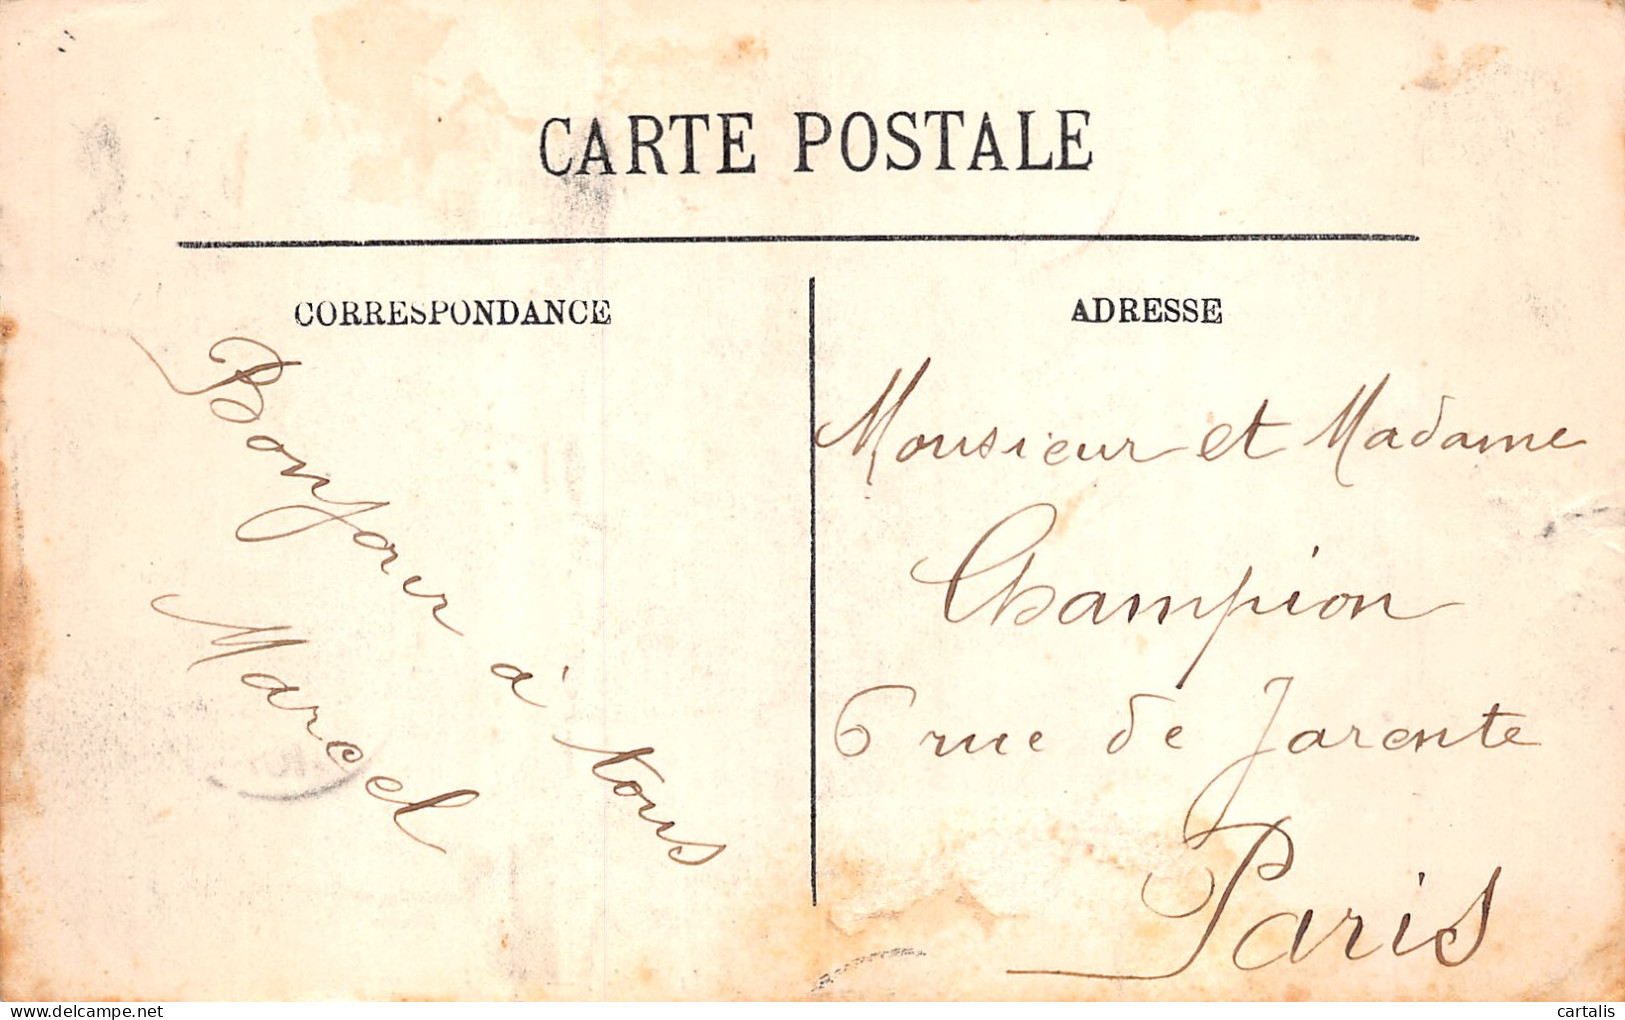 CARTE POSTALE
CORRESPONDANCE
Bonjour à tous
Marcel
ADRESSE
Monsieur et Madame
Champion
6 rue de Jarente
Paris
www.delcampe.net
cartalis